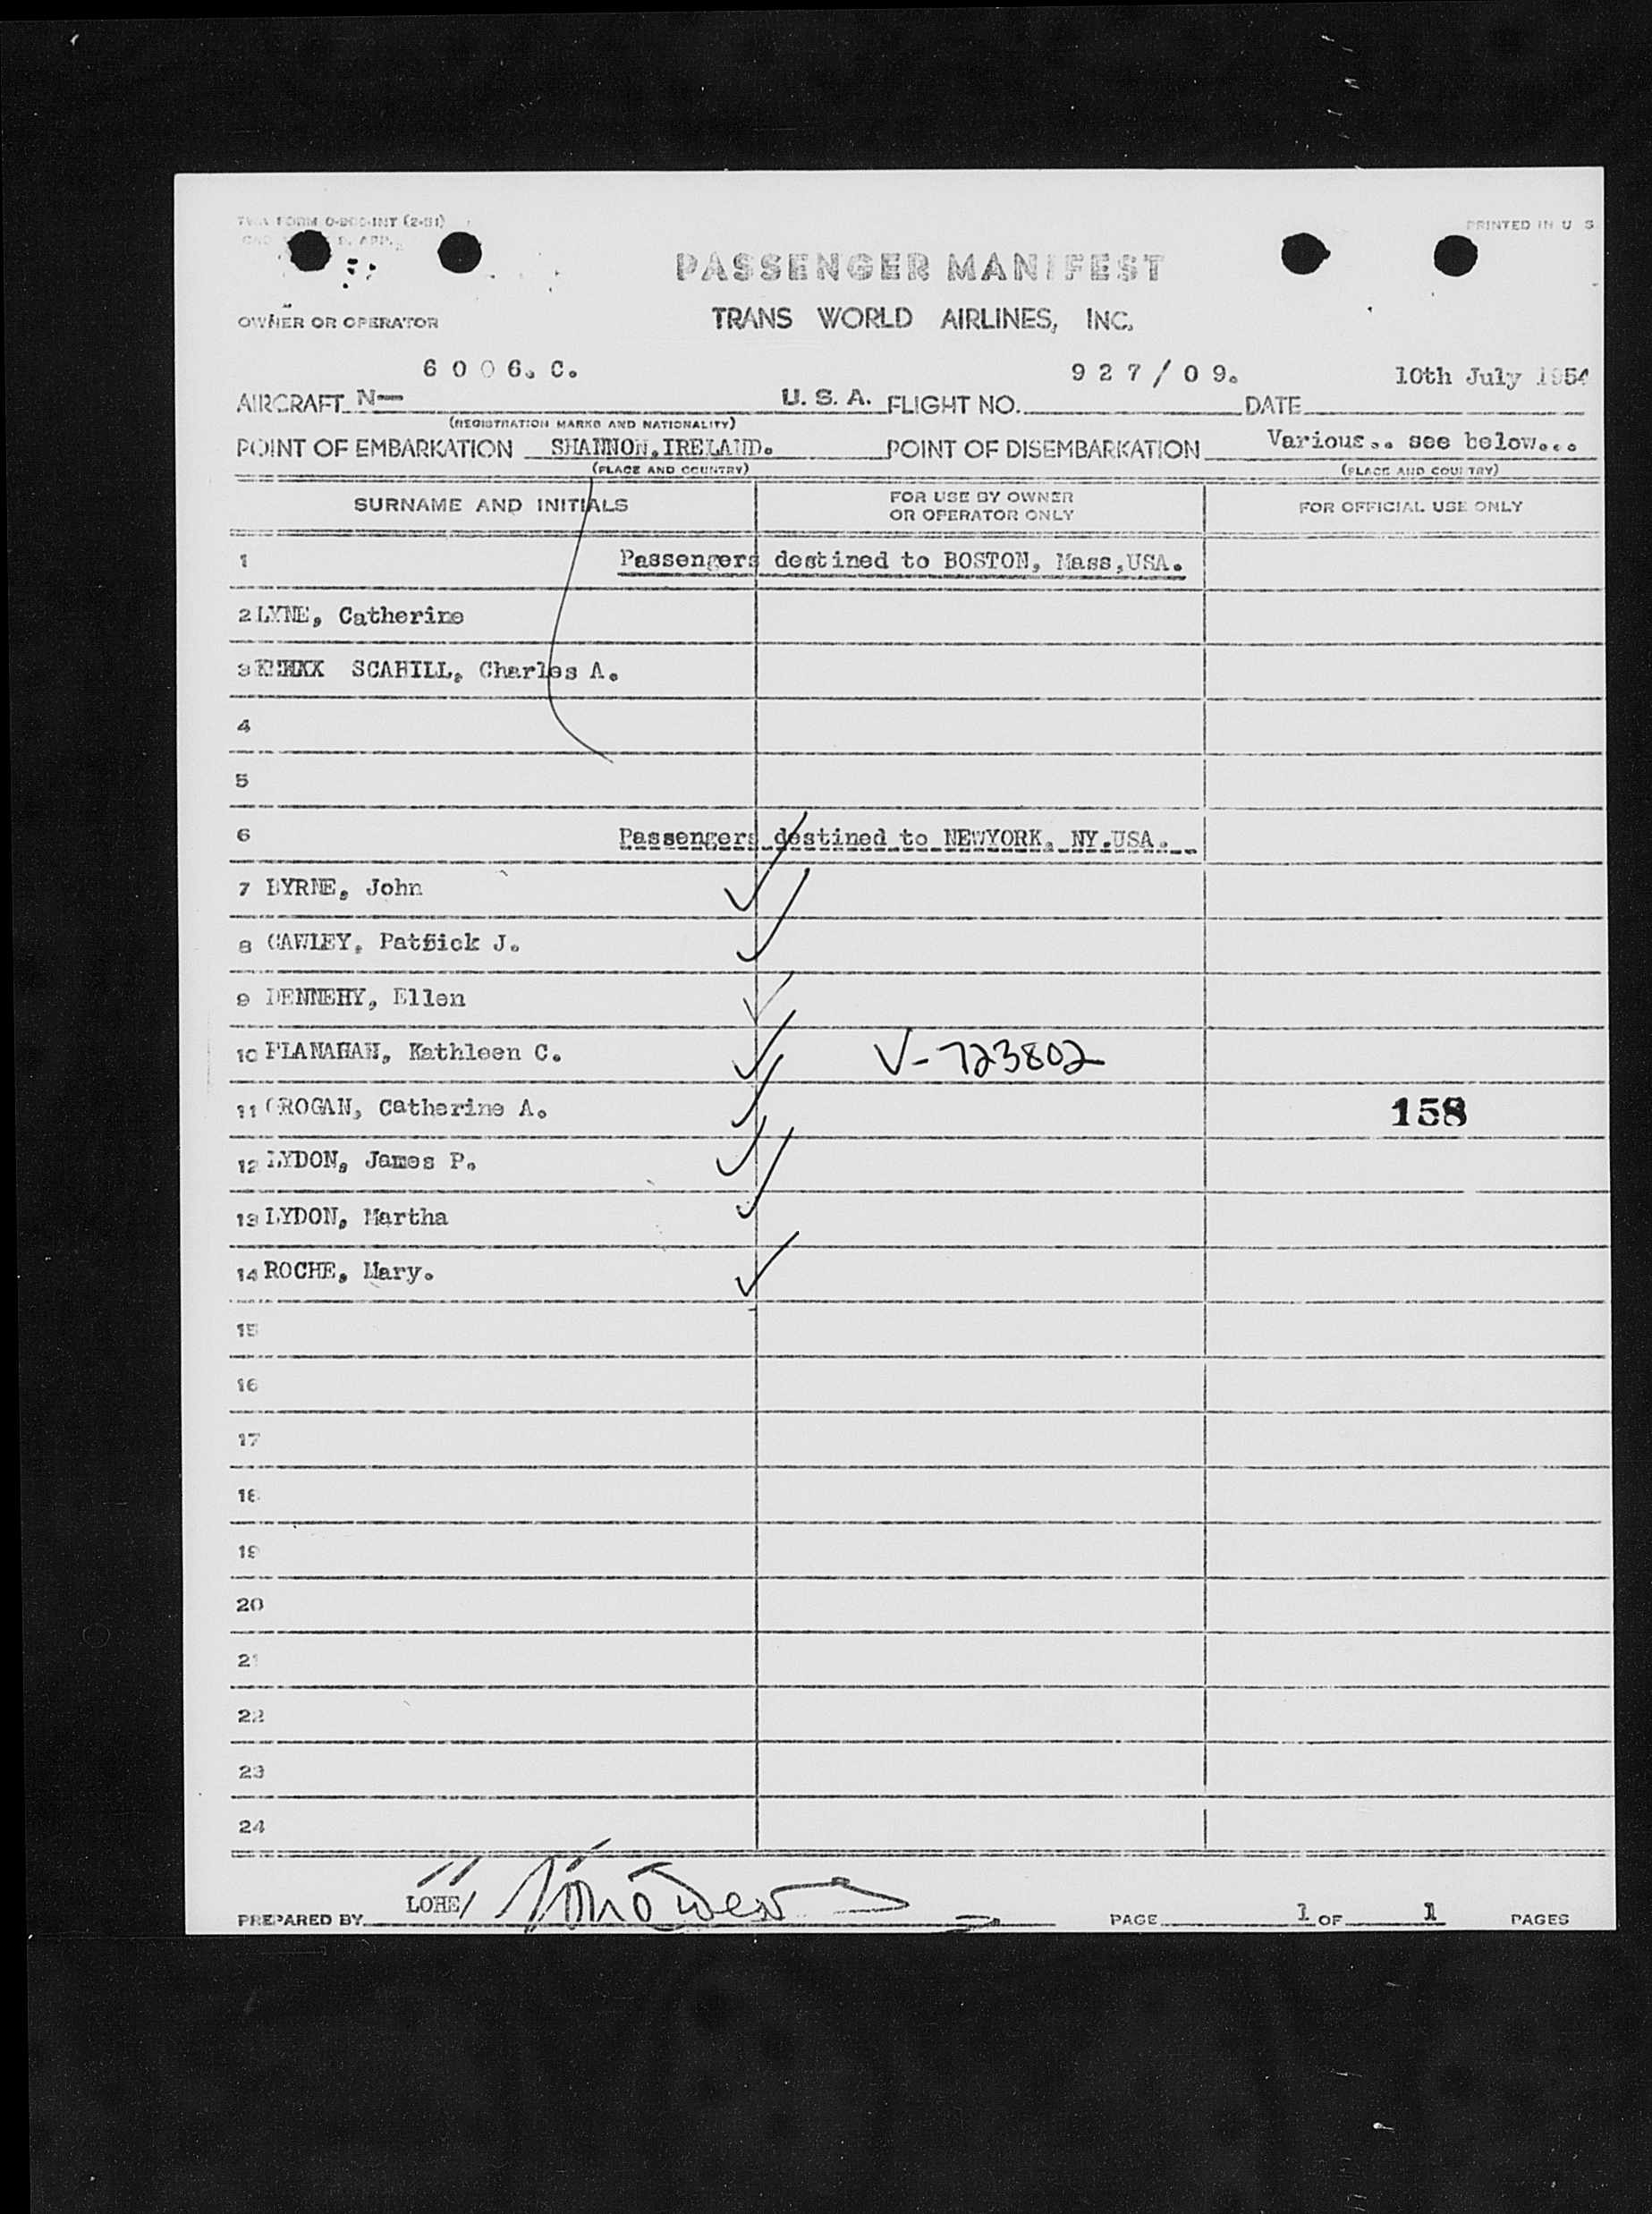 TWA FORM O-200-INT (2-51)
PRINTED IN U S
PASSENGER MANIFEST
OWNER OR OPERATOR TRANS WORLD AIRLINES, INC.
6 0 0 6. C. 9 2 7 / 0 9. 10th July 1954
AIRCRAFT N— U. S. A. FLIGHT NO. DATE
(REGISTRATION MARKS AND NATIONALITY)
POINT OF EMBARKATION SHANNON.IRELAND. POINT OF DISEMBARKATION Various.. see below...
(PLACE AND COUNTRY) (PLACE AND COUNTRY)
SURNAME AND INITIALS FOR USE BY OWNER OR OPERATOR ONLY FOR OFFICIAL USE ONLY
1 Passengers destined to BOSTON, Mass,USA.
2 LYNE, Catherine
3 SCAHILL, Charles A.
4
5
6 Passengers destined to NEWYORK. NY.USA.
7 BYRNE, John
8 CAWLEY, Patrick J.
9 DENNEHY, Ellen
10 FLANAHAN, Kathleen C. V-723802
11 GROGAN, Catherine A. 158
12 LYDON, James P.
13 LYDON, Martha
14 ROCHE, Mary.
15
16
17
18
19
20
21
22
23
24
PREPARED BY LOHE/ PAGE 1 OF 1 PAGES